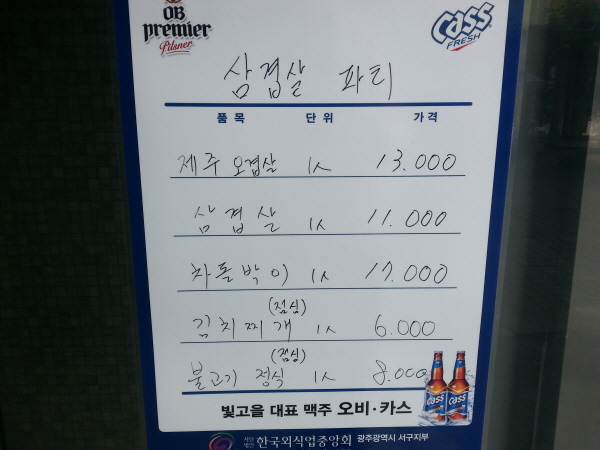 OB premier Pilsner
Cass FRESH
삼겹살 파티
품목 단위 가격
제주 오겹살 1人 13.000
삼겹살 1人 11.000
차돌박이 1人 17.000
(점심)
김치찌개 1人 6.000
(점심)
불고기 정식 1人 8.000
Cass Cass
빛고을 대표 맥주 오비·카스
사단법인 한국외식업중앙회 광주광역시 서구지부